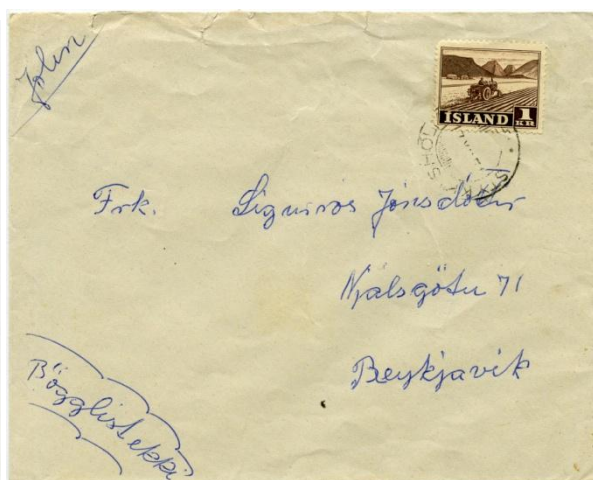 Jolin
ÍSLAND 1
KR
Frk. Sigurrós Jónsdóttir
Njálsgötu 71
Reykjavík
Böggli stekki